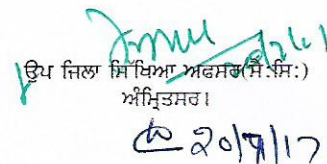 ਉਪ ਜਿਲਾ ਸਿੱਖਿਆ ਅਫਸਰ(ਸੈ:ਸਿ:)
ਅੰਮ੍ਰਿਤਸਰ।
20/7/17